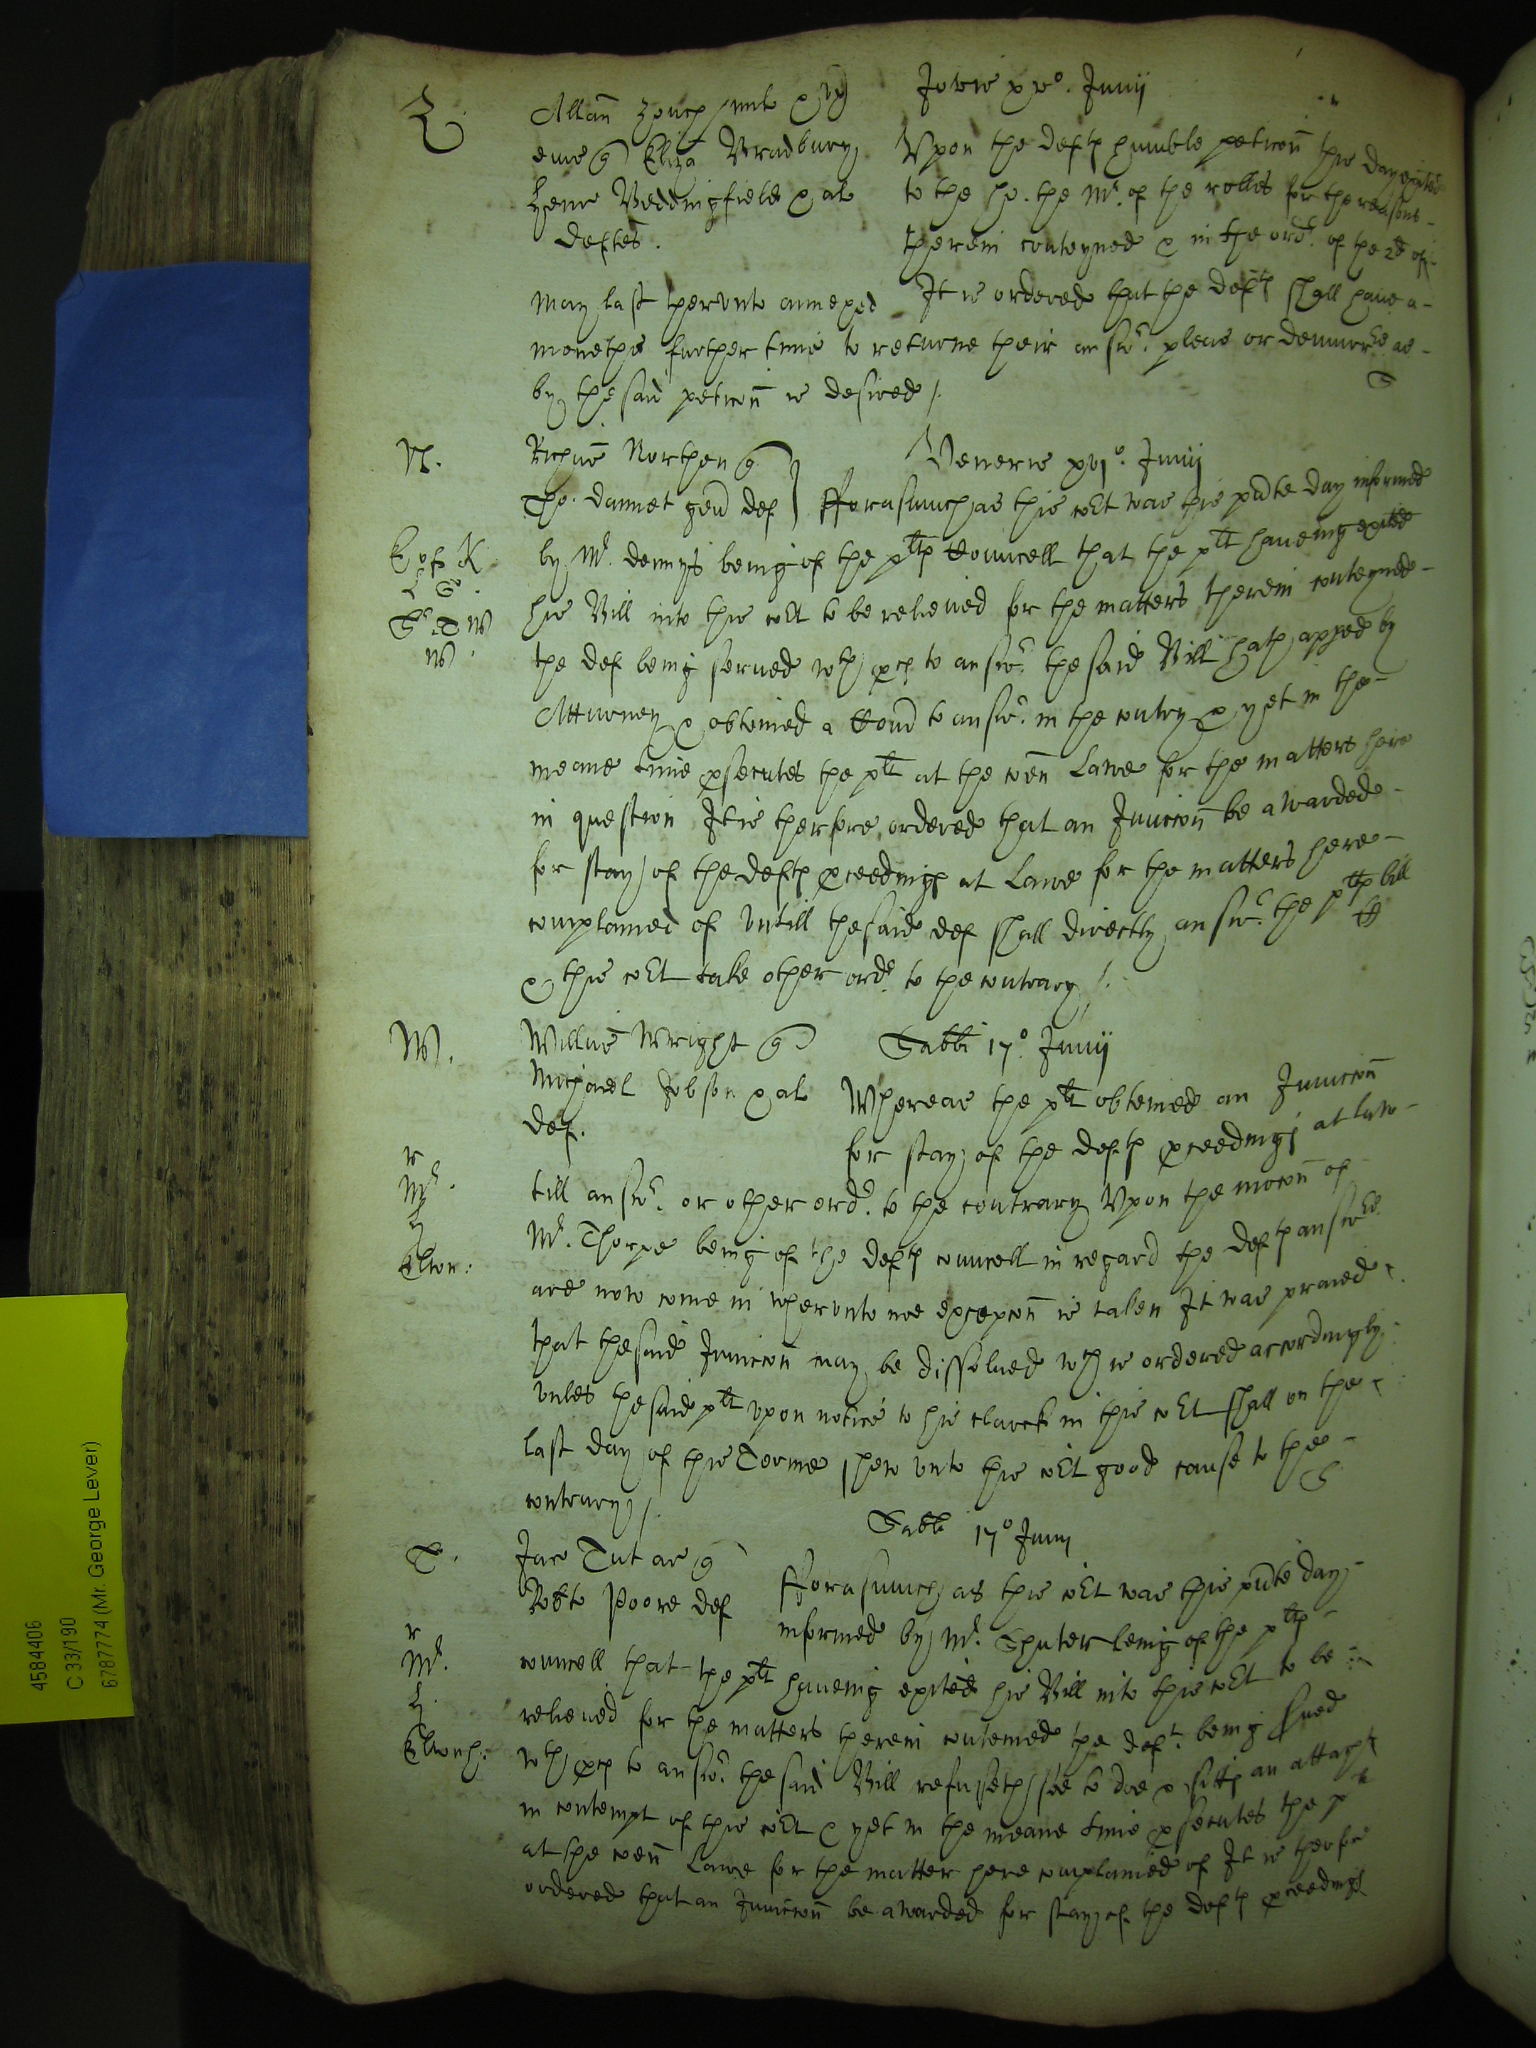 Z.
Allan Zouch milit & ux
eius q Eliza Bradbury
Henr Beddingfield & al
deftes.
Jovis xvo. Junij
Upon the defts humble peticon this day exited
to the ho. the Mr. of the rolles for the reasons
therein conteyned & in the ordr. of the 2d of
May last therunto annexed It is ordered that the defts shall have a
moneths further time to returne their answr. pleas or demurrs as
by the said peticon is desired /.
N.
Richus Northen q
Tho. Dannet gen def
Veneris xvjo. Junij
fforasmuch as this cort was this pnte day informed
by Mr. Dennys being of the plts Councell that the plt haveing exited
his Bill into this cort to be releived for the matters therein conteyned
the def being served wth pces to answr. the said Bill hath apped by
Atturney & obteined a Com to answr. in the contry & yet in the
meane time psecutes the plt at the coen Lawe for the matters here
in question It is therfore ordered that an Junccon be awarded
for stay of the defts pceedings at Lawe for the matters here
complained of untill the said def shall directly answr. the plts bill
& this cort take other ordr. to the contrary /.
W.
Willus Wright q
Michael Jobson & al
def.
Sabbi 17o. Junij
Whereas the plt obteined an Junccon
for stay of the defts pceedings at law
till answr. or other ordr. to the contrary Upon the mocon of
Mr. Thorpe being of the defts councell in regard the defts answrs
are now come in wherunto noe excepcon is taken It was praied
that the said Junccon may be dissolued wch is ordered accordingly
unles the said plt upon notice to his clarck in this cort shall on the
last day of this Terme shew unto this cort good cause to the
contrary /.
T.
Jac Tut ar q
Robto Poore def
Sabbi 17o Junij
fforasmuch as this cort was this pnte day
informed by Mr. Shuter being of the plts
councell that the plt haveing exited his Bill into this cort to be
releived for the matters therein conteined the deft. being srved
wth pces to answr. the said Bill refuseth soe to doe & sitts an attacht
in contempt of this cort & yet in the meane time psecutes the plt
at the coen Lawe for the matter here complained of It is therfor
ordered that an Junccon be awarded for stay of the defts pceedings
4584406
C 33/190
6787774 (Mr. George Lever)